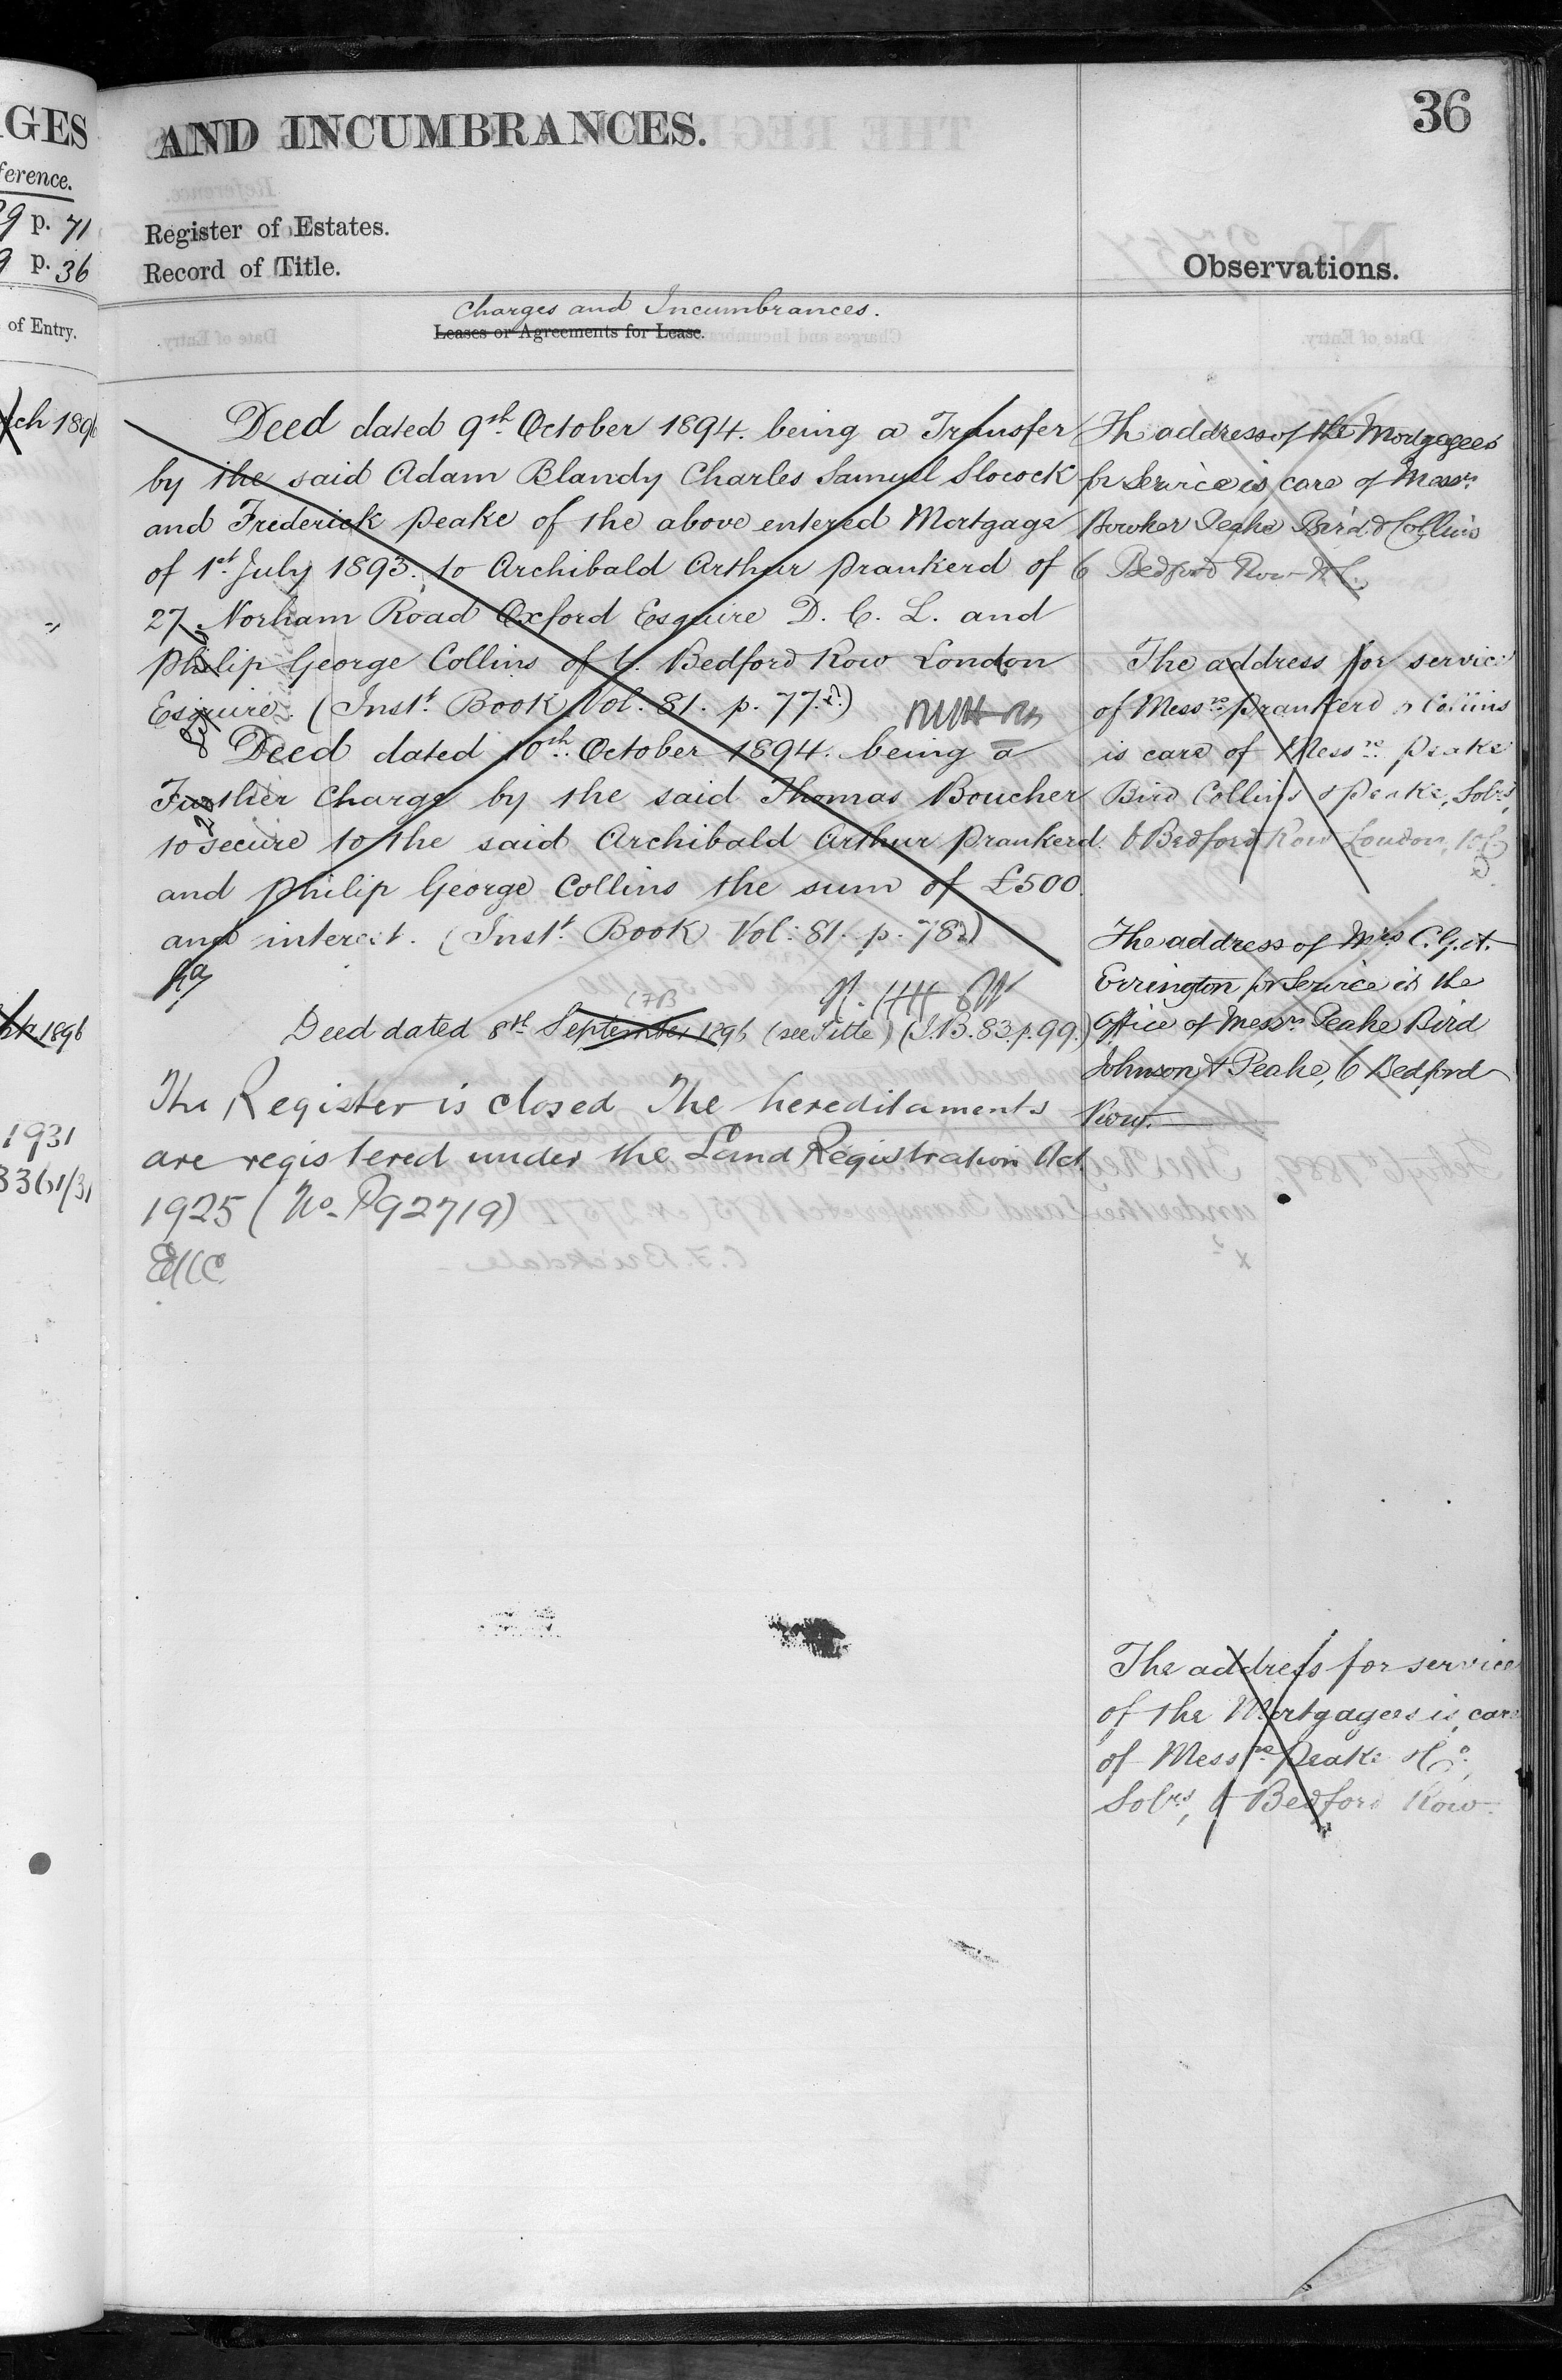 GES
ference.
9 p. 71
9 p. 36
of Entry.
ch 1896
1896
1931
3361/31
36
AND INCUMBRANCES.
Register of Estates.
Record of Title.
Charges and Incumbrances.
Leases or Agreements for Lease.
Deed dated 9th October 1894. being a Transfer
by the said Adam Blandy Charles Samuel Slocock
and Frederick Peake of the above entered Mortgage
of 1st July 1893. to Archibald Arthur Prankerd of
27 Norham Road Oxford Esquire D. C. L. and
Philip George Collins of 6. Bedford Row London
Esquire. (Inst. Book Vol. 81. p. 77.)
Deed dated 10th October 1894. being a
Further Charge by the said Thomas Boucher
to secure to the said Archibald Arthur Prankerd
and Philip George Collins the sum of £500.
and interest. (Inst. Book Vol: 81. p. 78)
Deed dated 8th September 1896 (see Title) (I.B. 83. p. 99.)
The Register is closed The hereditaments
are registered under the Land Registration Act
1925 (No. P92719)
Observations.
The address of the Mortgagees
for Service is care of Messrs
Bowker Peake Bird & Collins
6 Bedford Row W.C.
The address for service
of Messrs Prankerd & Collins
is care of Messrs Peake
Bird Collins & Peake, Solrs,
6 Bedford Row London, W.C.
The address of Mrs C. G. A.
Errington for Service is the
Office of Messrs Peake Bird
Johnson & Peake, 6 Bedford
Row.
The address for service
of the Mortgagees is care
of Messrs Peake & Co.,
Solrs, 6 Bedford Row.